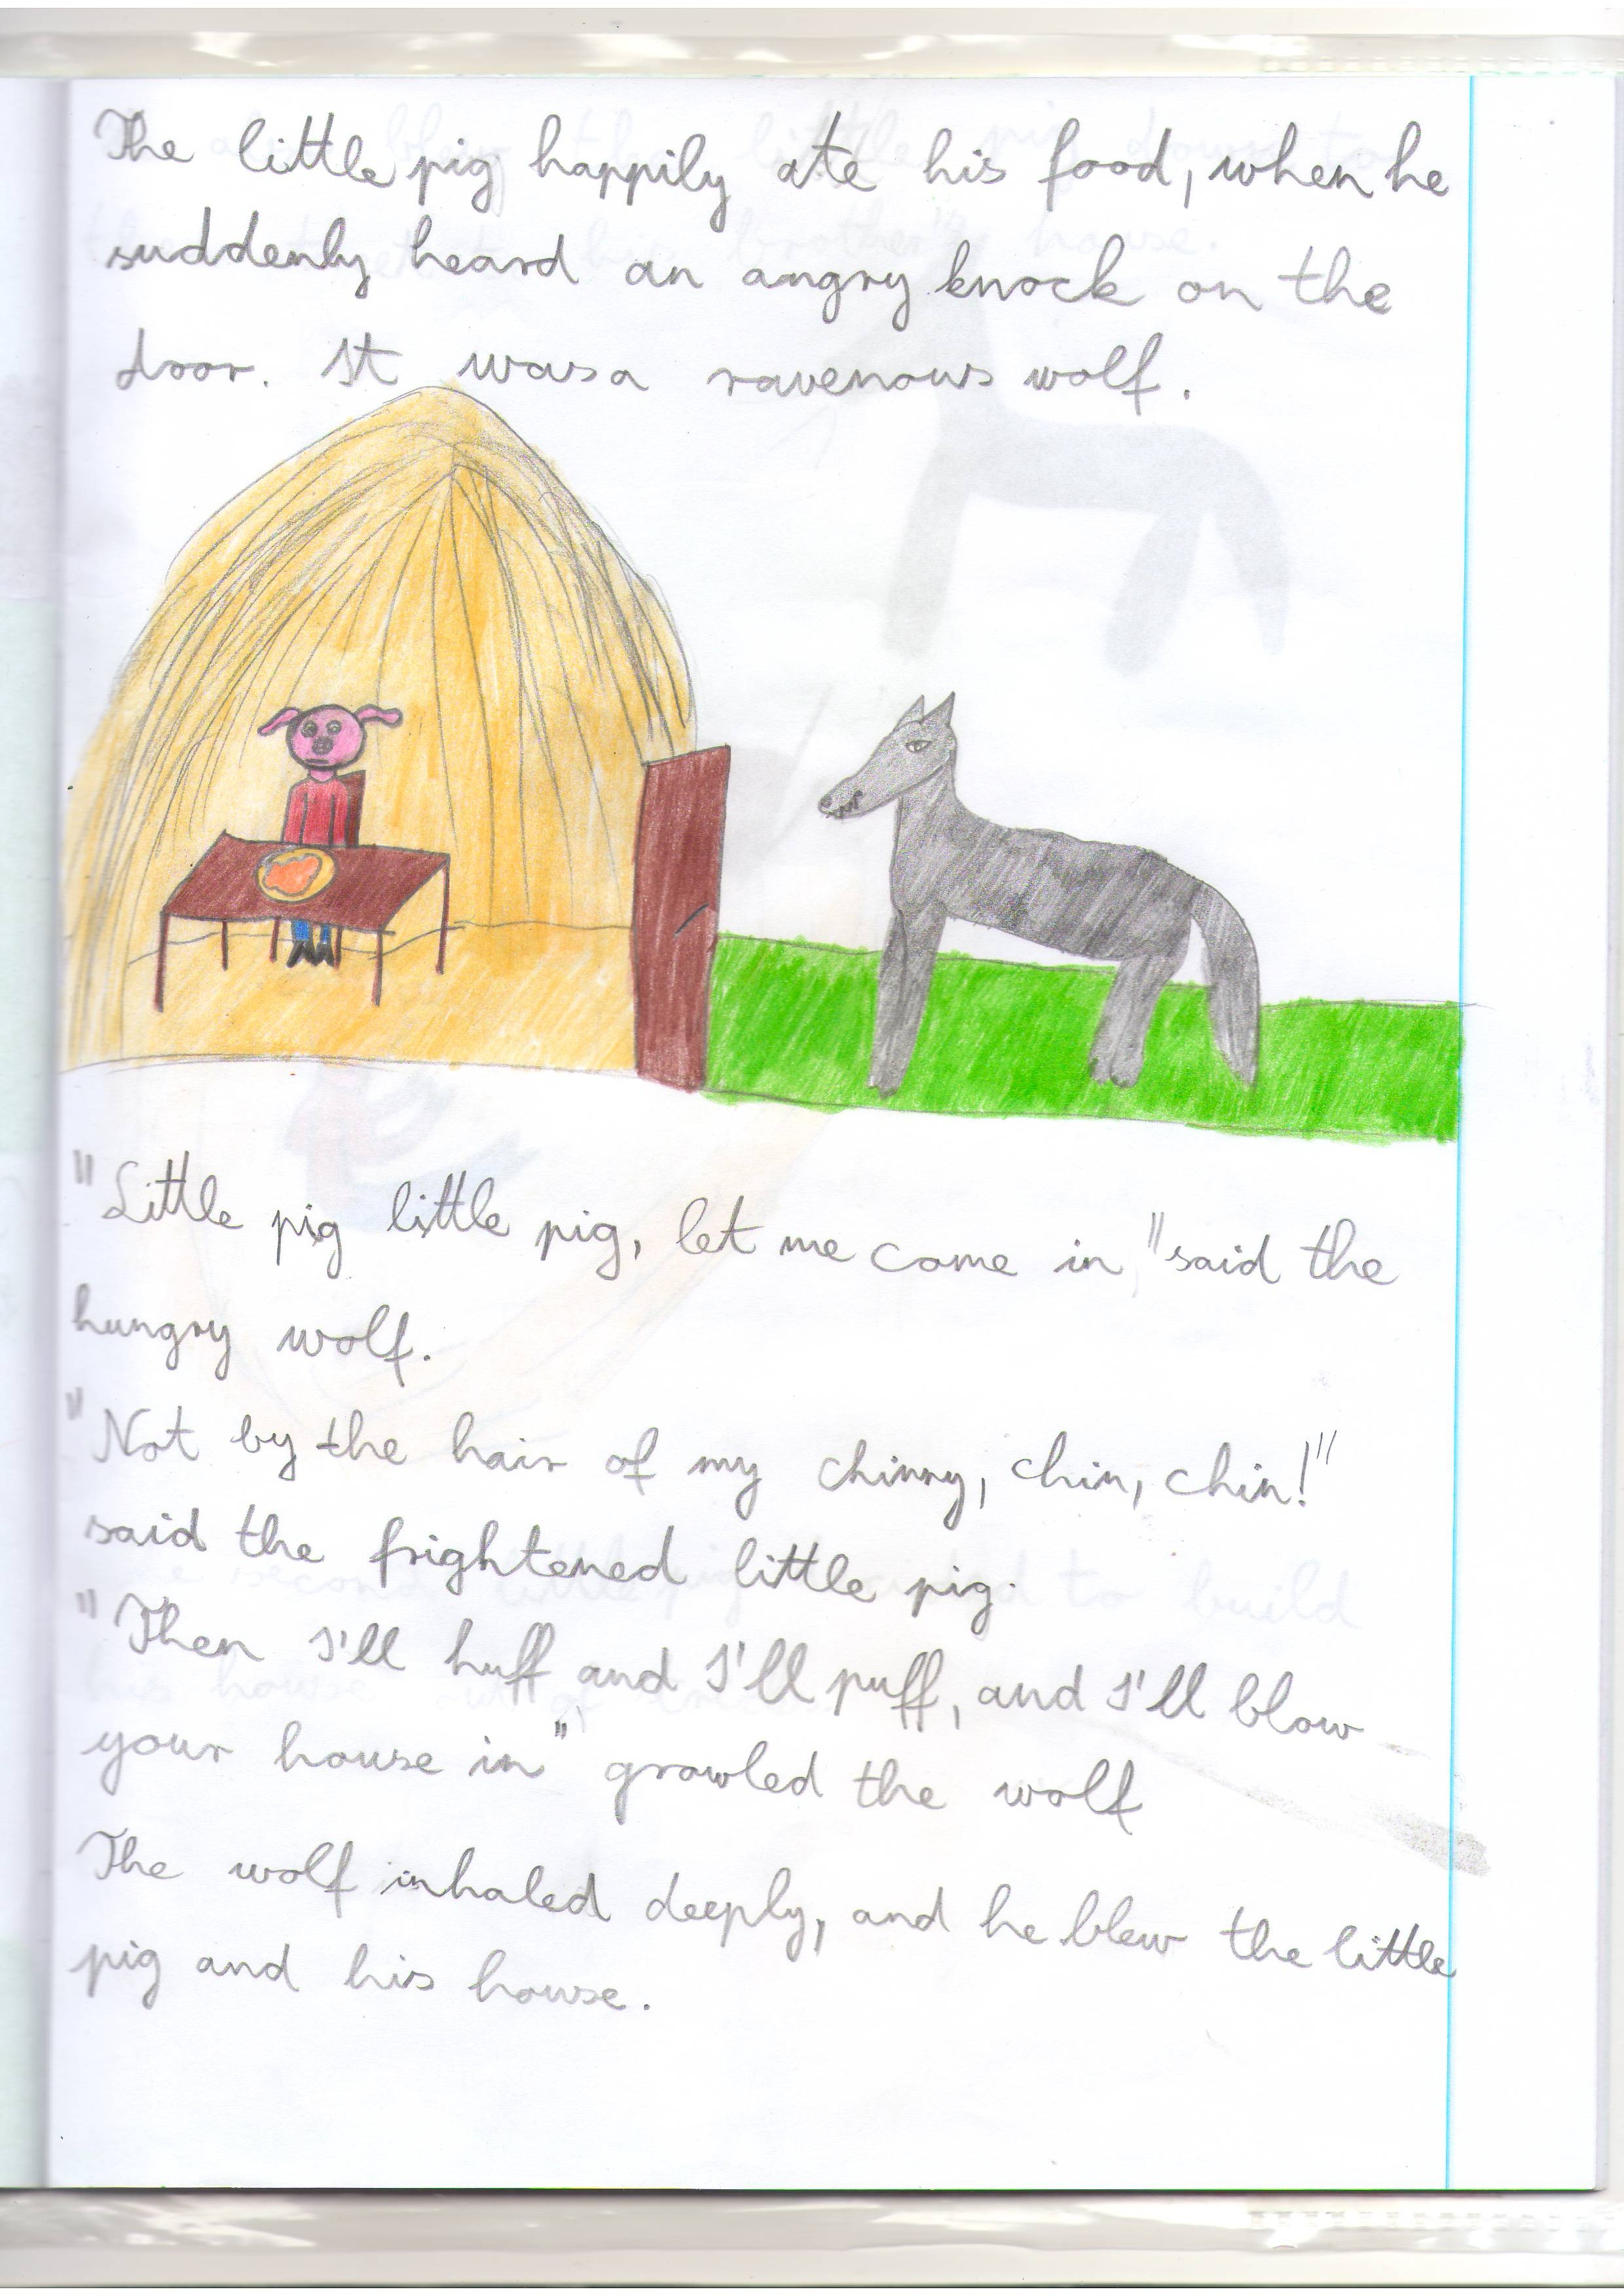 The little pig happily ate his food, when he
suddenly heard an angry knock on the
door. It was a ravenous wolf.
"Little pig little pig, let me come in," said the
hungry wolf.
"Not by the hair of my chinny, chin, chin!"
said the frightened little pig.
"Then I'll huff and I'll puff, and I'll blow
your house in" growled the wolf
The wolf inhaled deeply, and he blew the little
pig and his house.